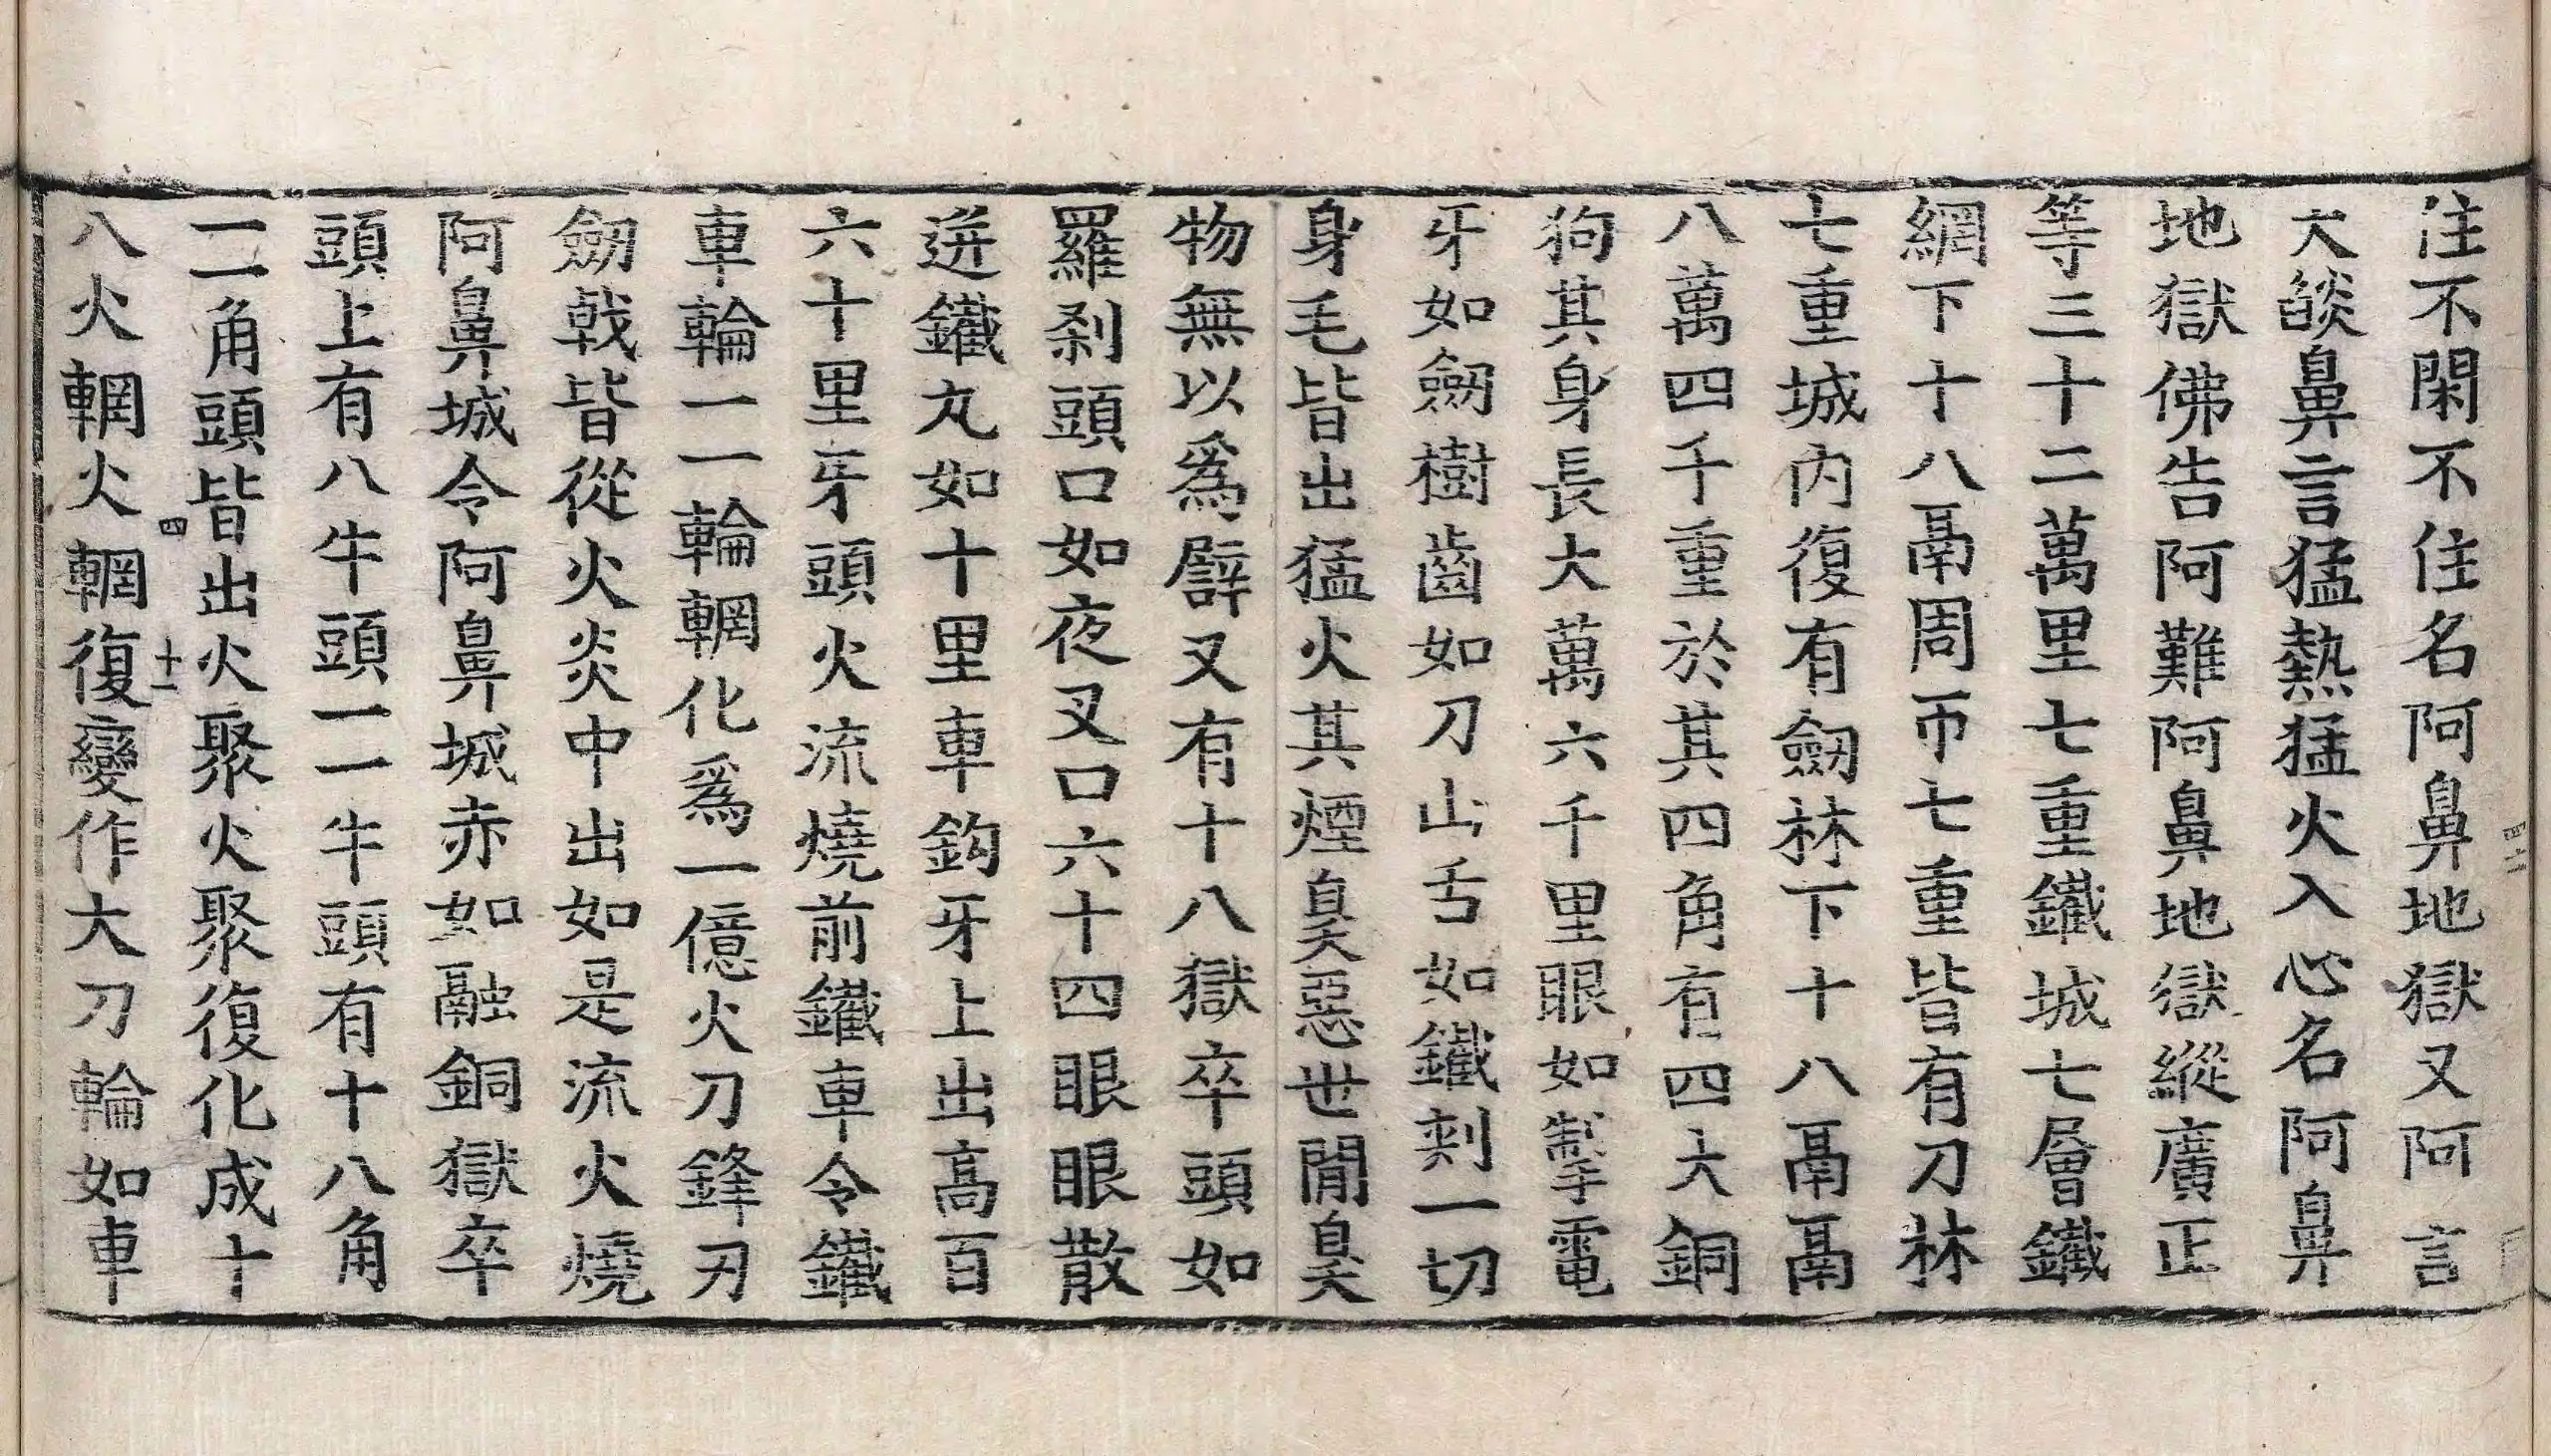 住不閑不住名阿鼻地獄又阿言
大燄鼻言猛熱猛火入心名阿鼻
地獄佛告阿難阿鼻地獄縱廣正
等三十二萬里七重鐵城七層鐵
網下十八鬲周帀七重皆有刀林
七重城內復有劒林下十八鬲鬲
八萬四千重於其四角有四大銅
狗其身長大萬六千里眼如掣電
牙如劒樹齒如刀山舌如鐵刺一切
身毛皆出猛火其煙臭惡世閒臭
物無以爲譬又有十八獄卒頭如
羅剎頭口如夜叉口六十四眼眼散
迸鐵丸如十里車鈎牙上出高百
六十里牙頭火流燒前鐵車令鐵
車輪一一輪輞化爲一億火刀鋒刃
劒戟皆從火炎中出如是流火燒
阿鼻城令阿鼻城赤如融銅獄卒
頭上有八牛頭一一牛頭有十八角
一一角頭皆出火聚火聚復化成十
四 十一
八火輞火輞復變作大刀輪如車